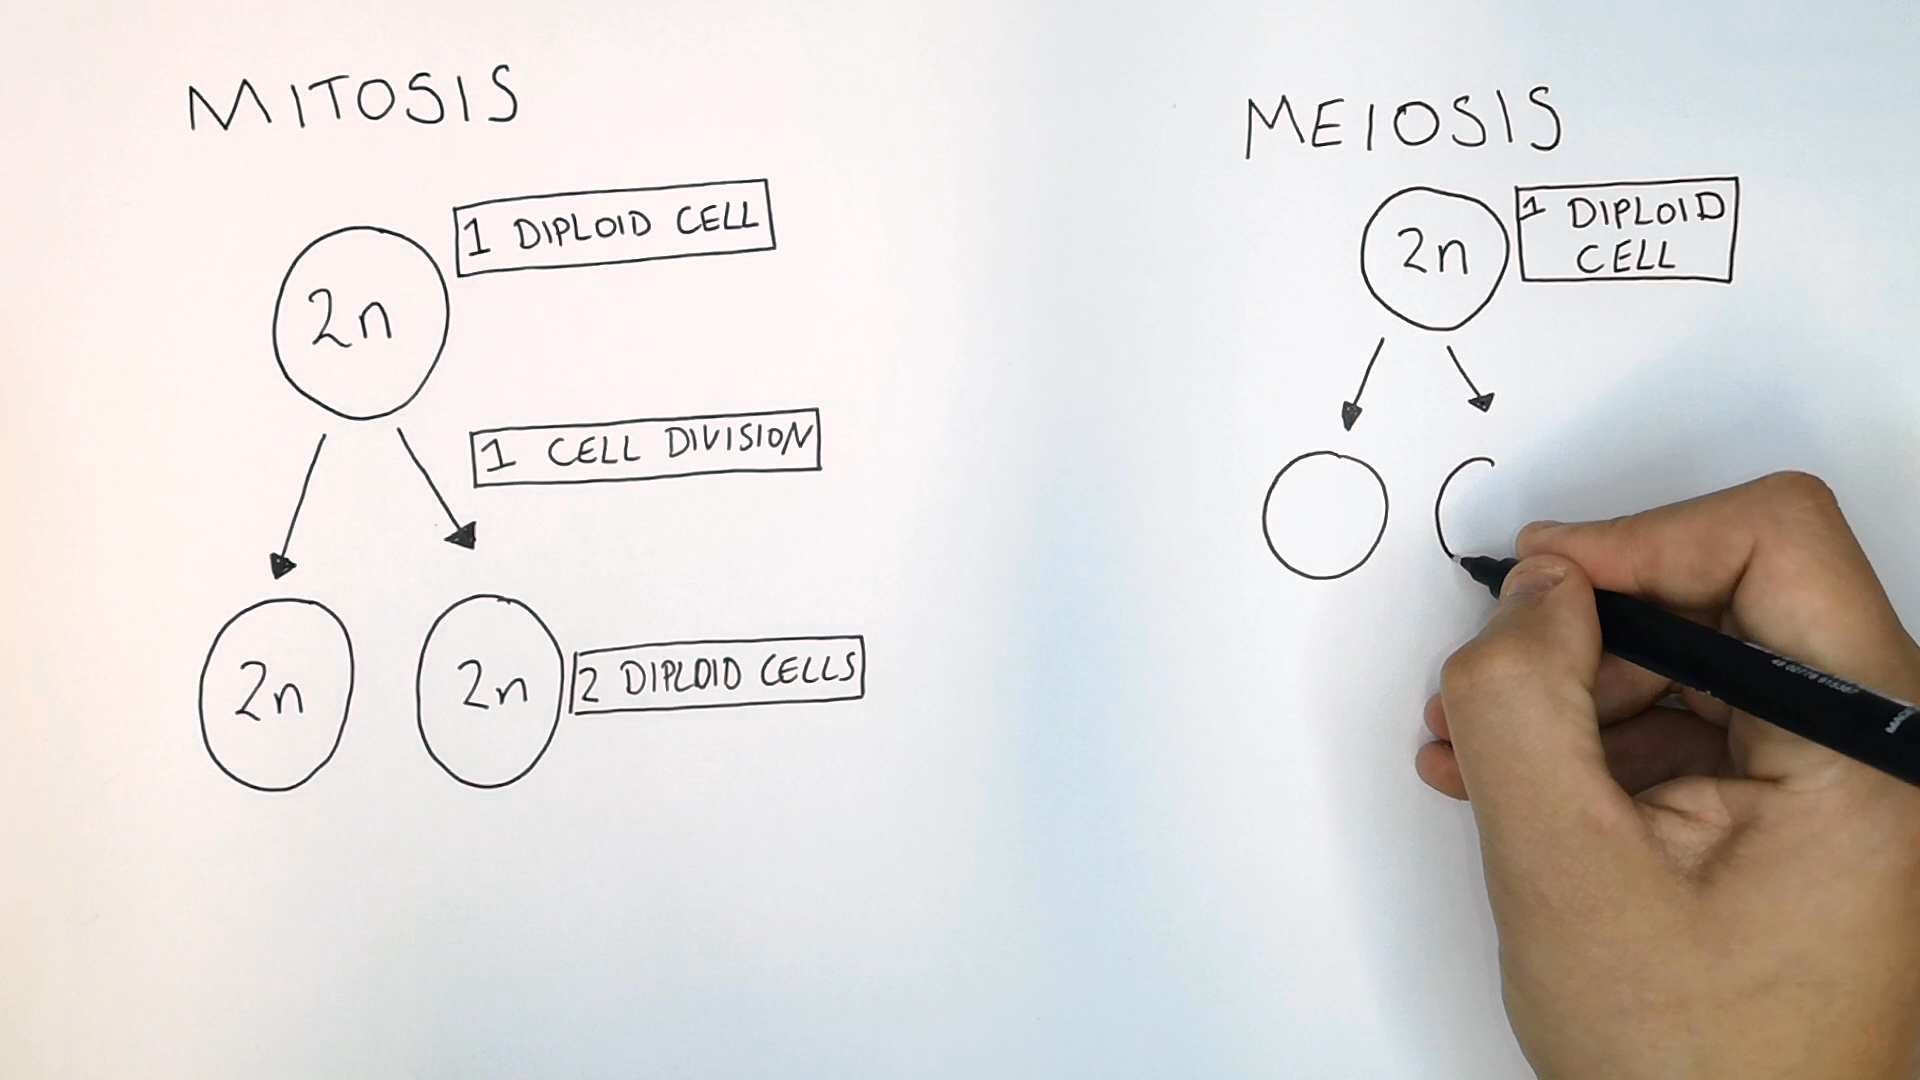 MITOSIS
1 DIPLOID CELL
2n
1 CELL DIVISION
2n
2n
2 DIPLOID CELLS
MEIOSIS
2n
1 DIPLOID
CELL